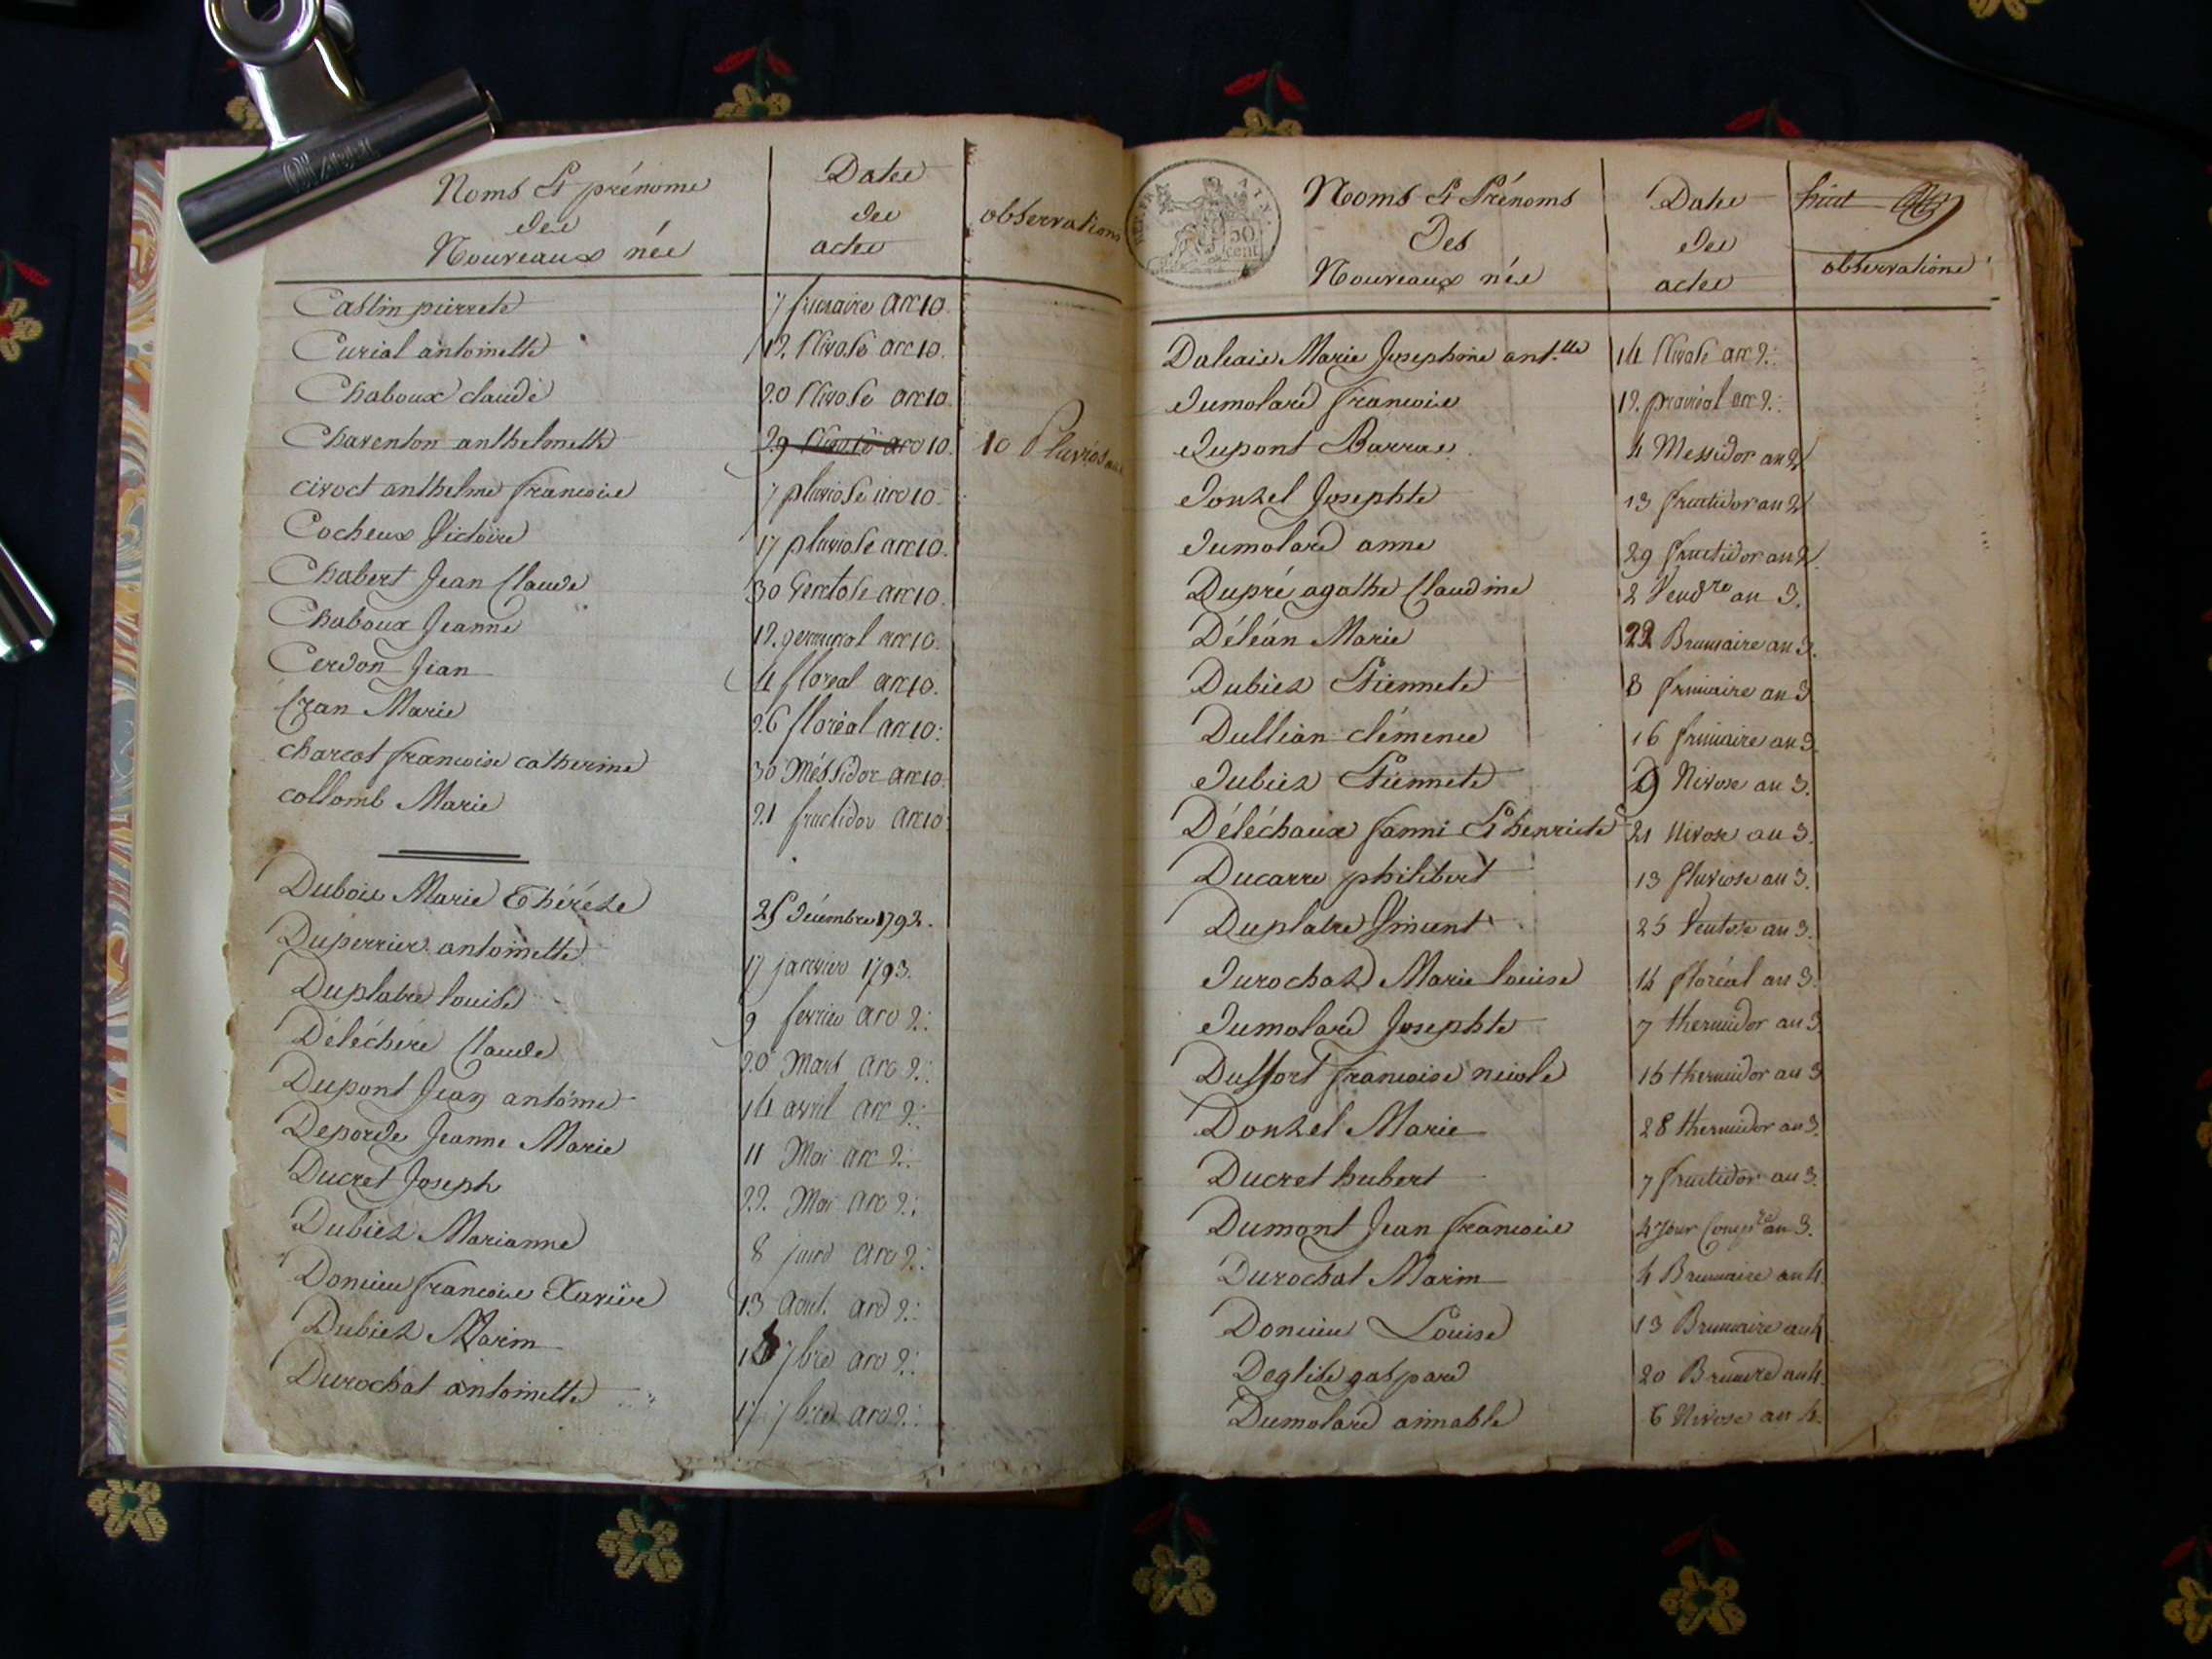 Noms Et prénoms
des
Nouveaux nés
Dates
des
actes
observations
Caslin pierrete 7 frimaire an 10.
Curial antoinette 12. Nivose an 10.
Chaboux claude 20 Nivose an 10
Charenton anthelmette 29 Nivose an 10. 10 Pluviose
civoct anthelme francois 7 pluviose an 10.
Cocheux Victoire 17 pluviose an 10.
Chabert Jean Claude 30 Ventose an 10.
Chaboux Jeanne 12. germinal an 10.
Cerdon Jean 4 floreal an 10.
Marie 26 floréal an 10:
charcot francoise catherine 30 Méssidor an 10.
collomb Marie 21 fructidor an 10.
Dubois Marie Thérése 25 décembre 1792.
Duperrier antoinette 17 janvier 1793.
Duplatre louise 9 fevrier an 2.
Déléchére Claude 20 Mars an 2.
Dupont Jean antoine 14 avril an 2.
Deporde Jeanne Marie 11 Mai an 2.
Ducret Joseph 22. Mai an 2.
Dubiez Marianne 8 juin an 2.
Domieu francois Xavier 13 Aout. an 2.
Dubiez Marin 7bre an 2.
Durochat antoinette 17 7bre an 2.
REP. FRA. 50 cent.
Noms Et Prénoms
Des
Nouveaux nés
Dates
des
actes
huit
observations
Daleais Marie Josephine ant.tte 14 Nivose an 2.
dumolard francois 12. prairéal an 2.
dupont Barras 4 Messidor an 2
donzel Josephte 13 fructidor an 2
dumolard anne 29 fructidor an 2
Dupré agathe Claudine 2 Vendre an 3.
Déléan Marie 22 Brumaire an 3.
Dubiez Etiennete 8 frimaire an 3
Dullian clémence 16 frimaire an 3
dubiez Etiennete 9 Nivose an 3.
Déléchaux fanni Et henriete 21 Nivose an 3.
Ducarre philibert 13 Pluviose an 3.
Duplatre Vincent 25 Ventose an 3.
durochaz Marie louise 14 floréal an 3
dumolard Josephte 7 thermidor an 3
Duffort francoise nicole 15 thermidor an 3
Donzel Marie 28 thermidor an 3.
Ducret hubert 7 fructidor an 3.
Dumont Jean francois 4 jour Compre an 3.
Durochat Marin 4 Brumaire an 4.
Domieu Louise 13 Brumaire an 4
Deglise gaspard 20 Brumre an 4.
Dumolard aimable 6 Nivose an 4.